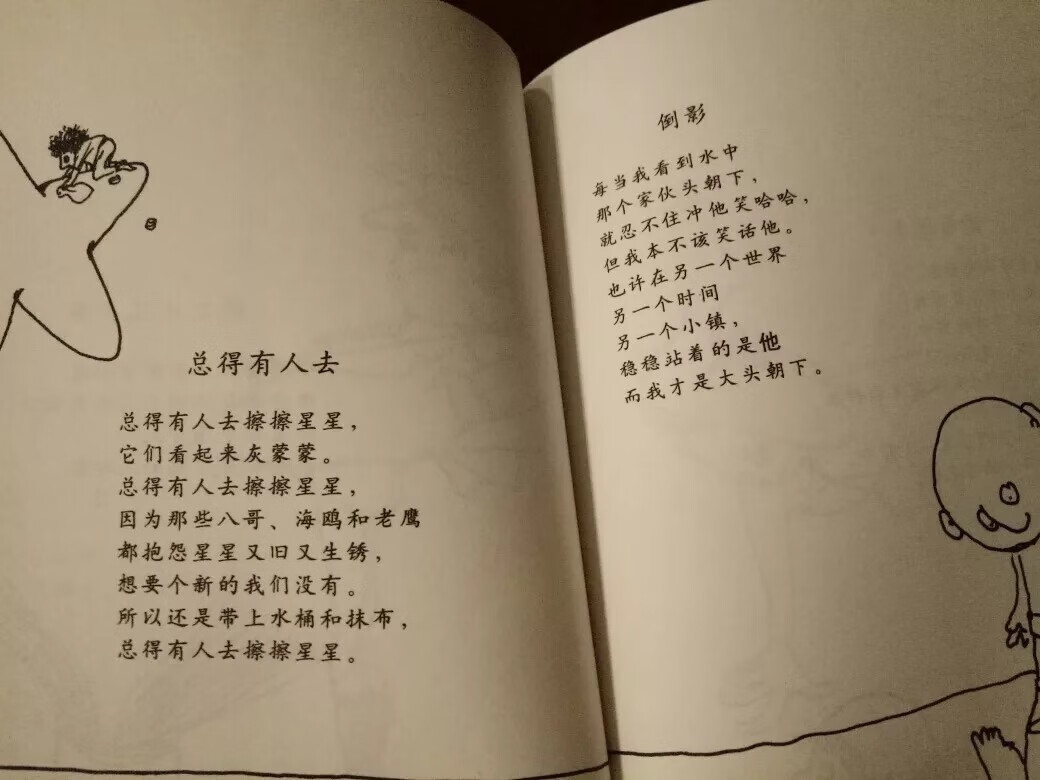 总得有人去
总得有人去擦擦星星，
它们看起来灰蒙蒙。
总得有人去擦擦星星，
因为那些八哥、海鸥和老鹰
都抱怨星星又旧又生锈，
想要个新的我们没有。
所以还是带上水桶和抹布，
总得有人去擦擦星星。
倒影
每当我看到水中
那个家伙头朝下，
就忍不住冲他笑哈哈，
但我本不该笑话他。
也许在另一个世界
另一个时间
另一个小镇，
稳稳站着的是他
而我才是大头朝下。